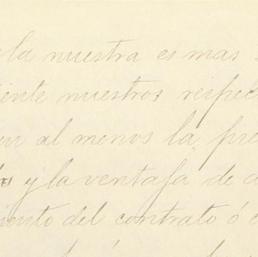 la nuestra es mas
nuestros respec
al menos la pre
y la ventaja de
del contrato ó